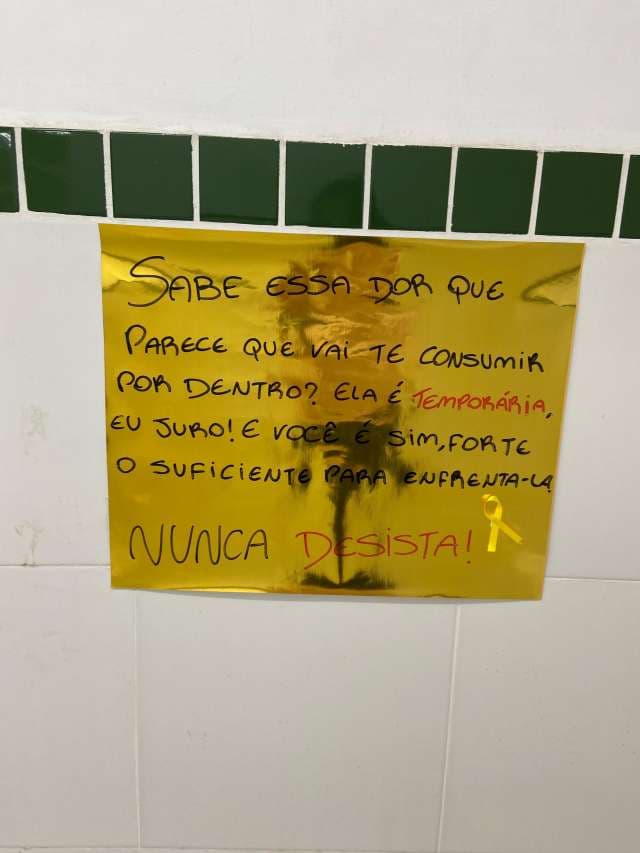 SABE ESSA DOR QUE
PARECE QUE VAI TE CONSUMIR
POR DENTRO? ELA É TEMPORÁRIA,
EU JURO! E VOCÊ É SIM, FORTE
O SUFICIENTE PARA ENFRENTA-LA
NUNCA DESISTA!